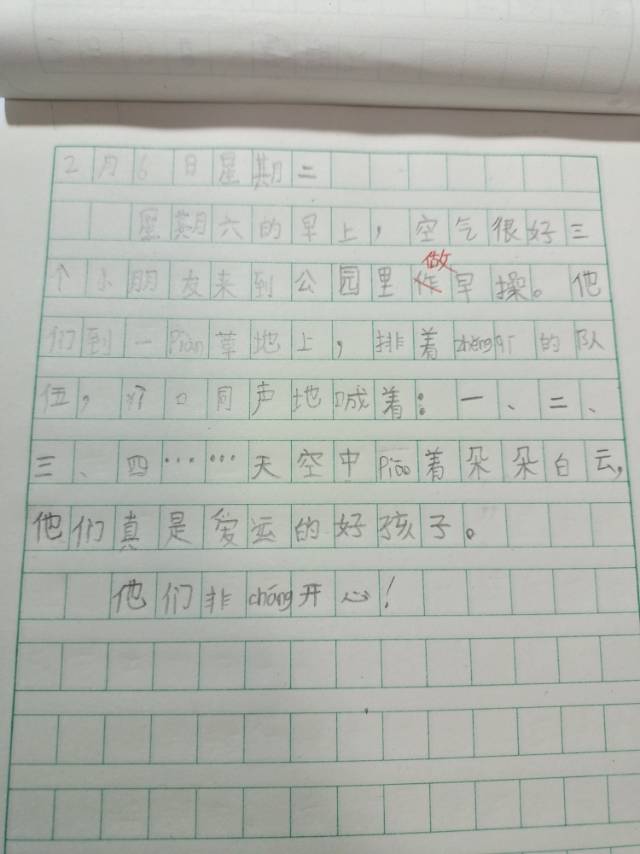 2月6日星期二
星期六的早上，空气很好三
个小朋友来到公园里作做早操。他
们到一piàn草地上，排着zhěngqí的队
伍，异口同声地喊着：一、二、
三、四……天空中piāo着朵朵白云，
他们真是爱运的好孩子。
他们非cháng开心！